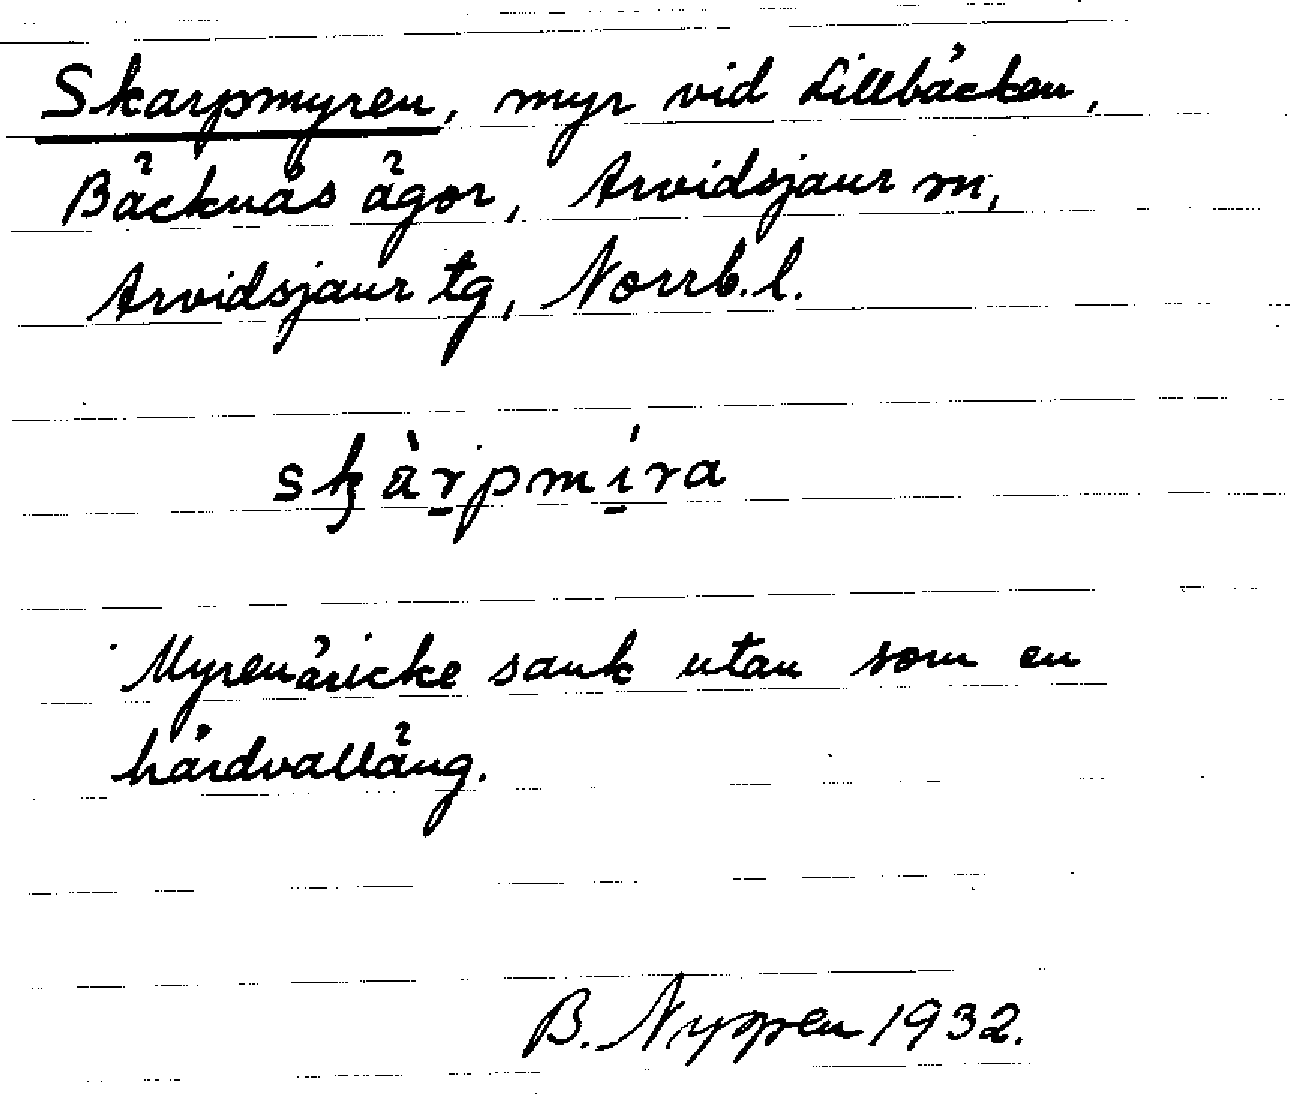 Skarpmyren, myr vid Lillbäcken,
Bäcknäs ägor, Arvidsjaur sn,
Arvidsjaur tg, Norrb. l.
skàrpmíra
Myren är icke sank utan som en
hårdvalläng.
B. 1932.